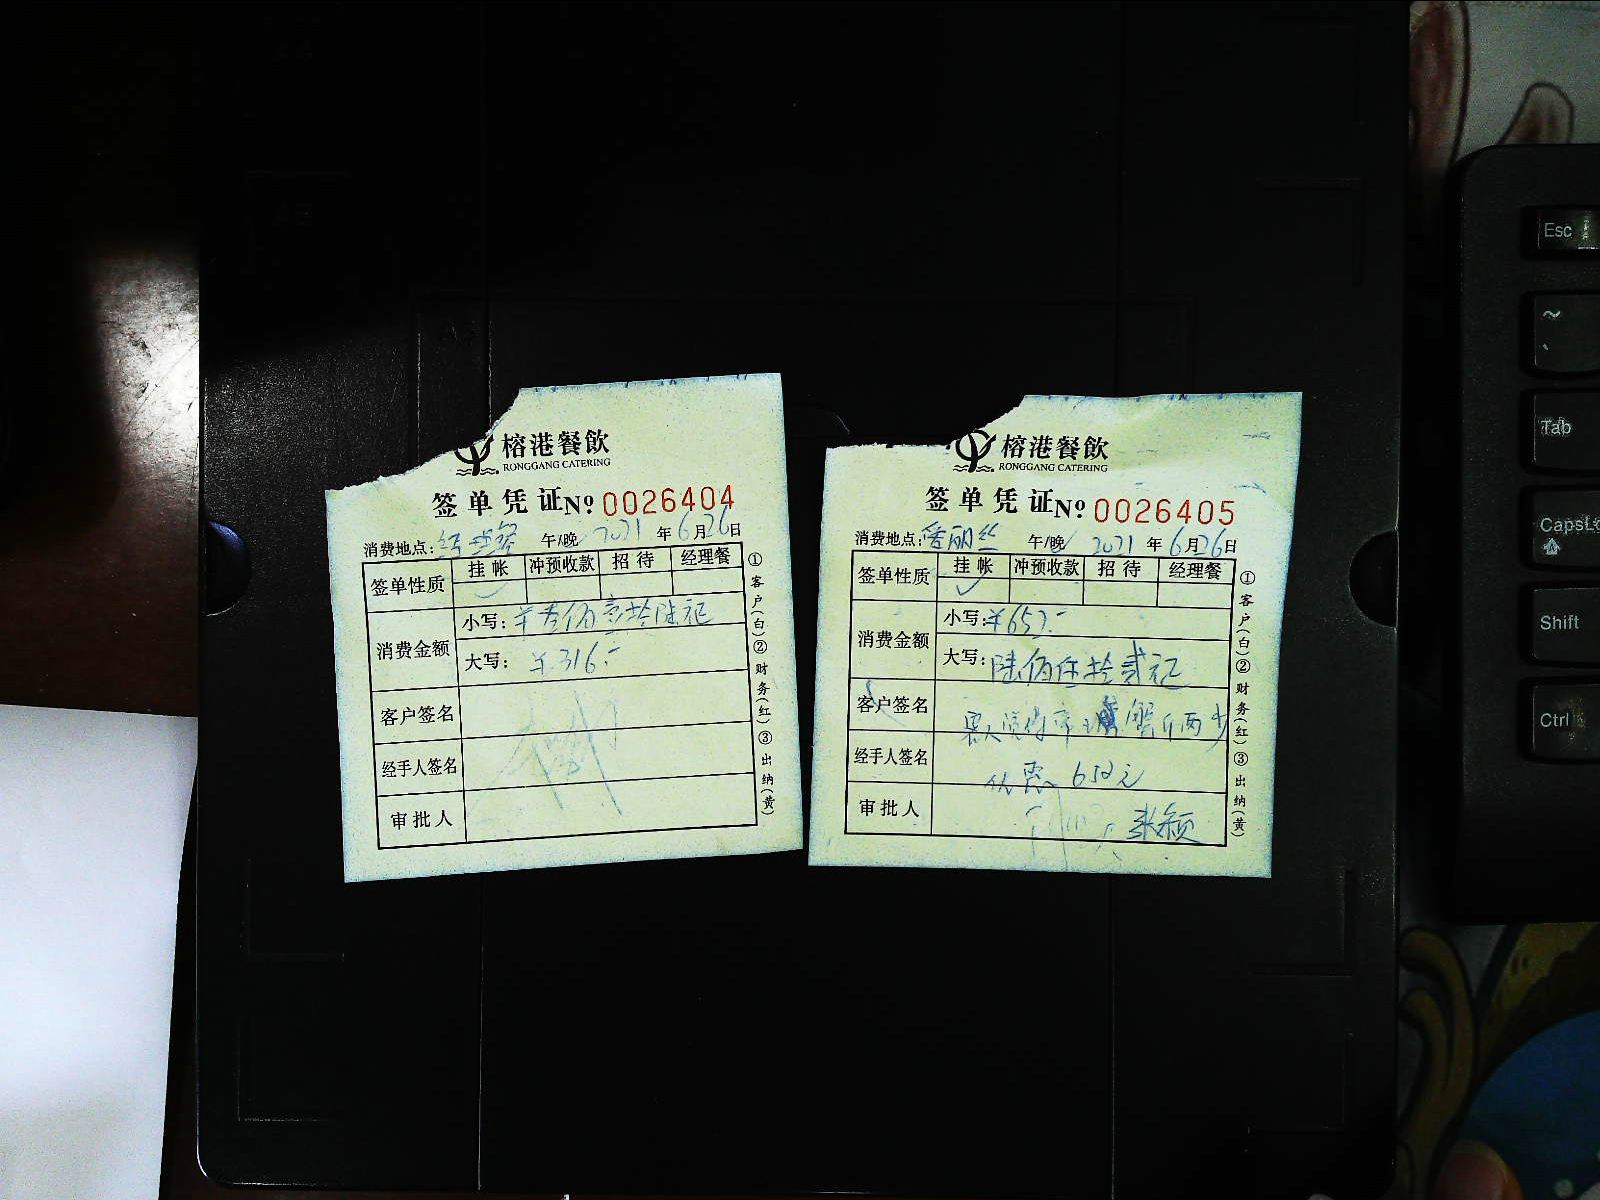 榕港餐飲
RONGGANG CATERING
签单凭证 No 0026404
消费地点: 午/晚 2021年6月26日
签单性质 挂帐 冲预收款 招待 经理餐
消费金额
小写: ¥叁佰壹拾陆元
大写: ¥316.-
客户签名
经手人签名
审批人
①客户(白)②财务(红)③出纳(黄)
榕港餐飲
RONGGANG CATERING
签单凭证 No 0026405
消费地点: 香丽丝 午/晚 2021年6月26日
签单性质 挂帐 冲预收款 招待 经理餐
消费金额
小写: ¥652.-
大写: 陆佰伍拾贰元
客户签名
经手人签名
652元
审批人 张颖
①客户(白)②财务(红)③出纳(黄)
Esc
~
Tab
CapsLo
Shift
Ctrl